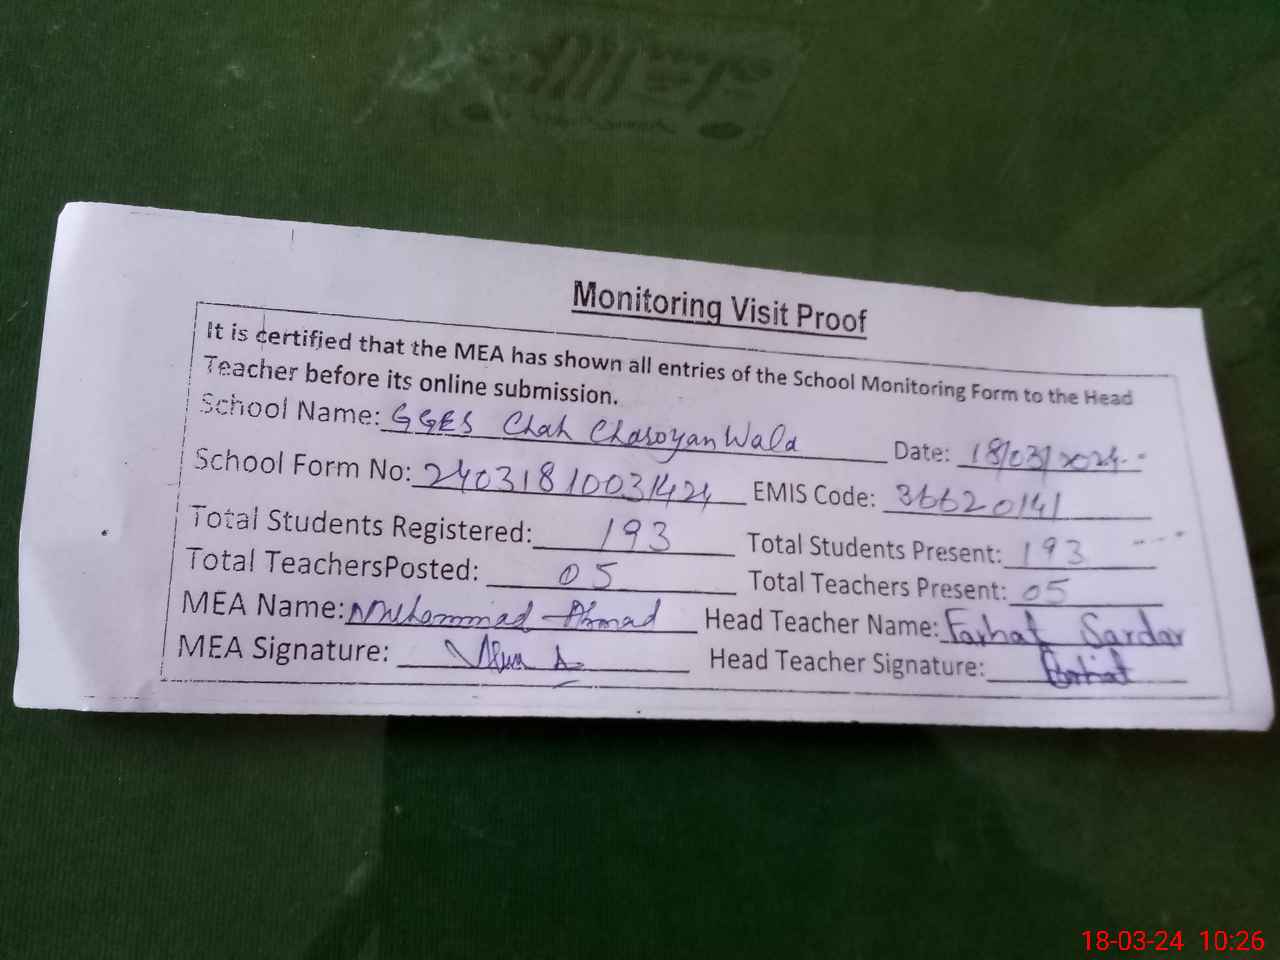 Monitoring Visit Proof
It is certified that the MEA has shown all entries of the School Monitoring Form to the Head
Teacher before its online submission.
School Name: GGES Chah Chasoyan Wala Date: 18/03/2024
School Form No: 24031810031424 EMIS Code: 36620141
Total Students Registered: 193 Total Students Present: 193
Total TeachersPosted: 05 Total Teachers Present: 05
MEA Name: Muhammad Ahmad Head Teacher Name: Farhat Sardar
MEA Signature: Head Teacher Signature:
18-03-24 10:26